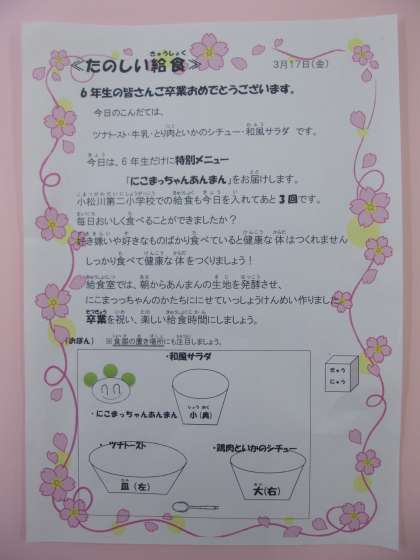 ≪たのしい給食≫
3月17日(金)
6年生の皆さんご卒業おめでとうございます。
今日のこんだては、
ツナトースト・牛乳・とり肉といかのシチュー・和風サラダ です。
今日は、6年生だけに特別メニュー
「にこまっちゃんあんまん」をお届けします。
小松川第二小学校での給食も今日を入れてあと3回です。
毎日おいしく食べることができましたか?
好き嫌いや好きなものばかり食べていると健康な体はつくれません
しっかり食べて健康な体をつくりましょう!
給食室では、朝からあんまんの生地を発酵させ、
にこまっっちゃんのかたちににせていっしょうけんめい作りました。
卒業を祝い、楽しい給食時間にしましょう。
(おぼん) ※食器の置き場所にも注目しましょう。
・和風サラダ
ぎゅう
にゅう
・にこまっちゃんあんまん
小(奥)
・ツナトースト
・鶏肉といかのシチュー
皿(左)
大(右)